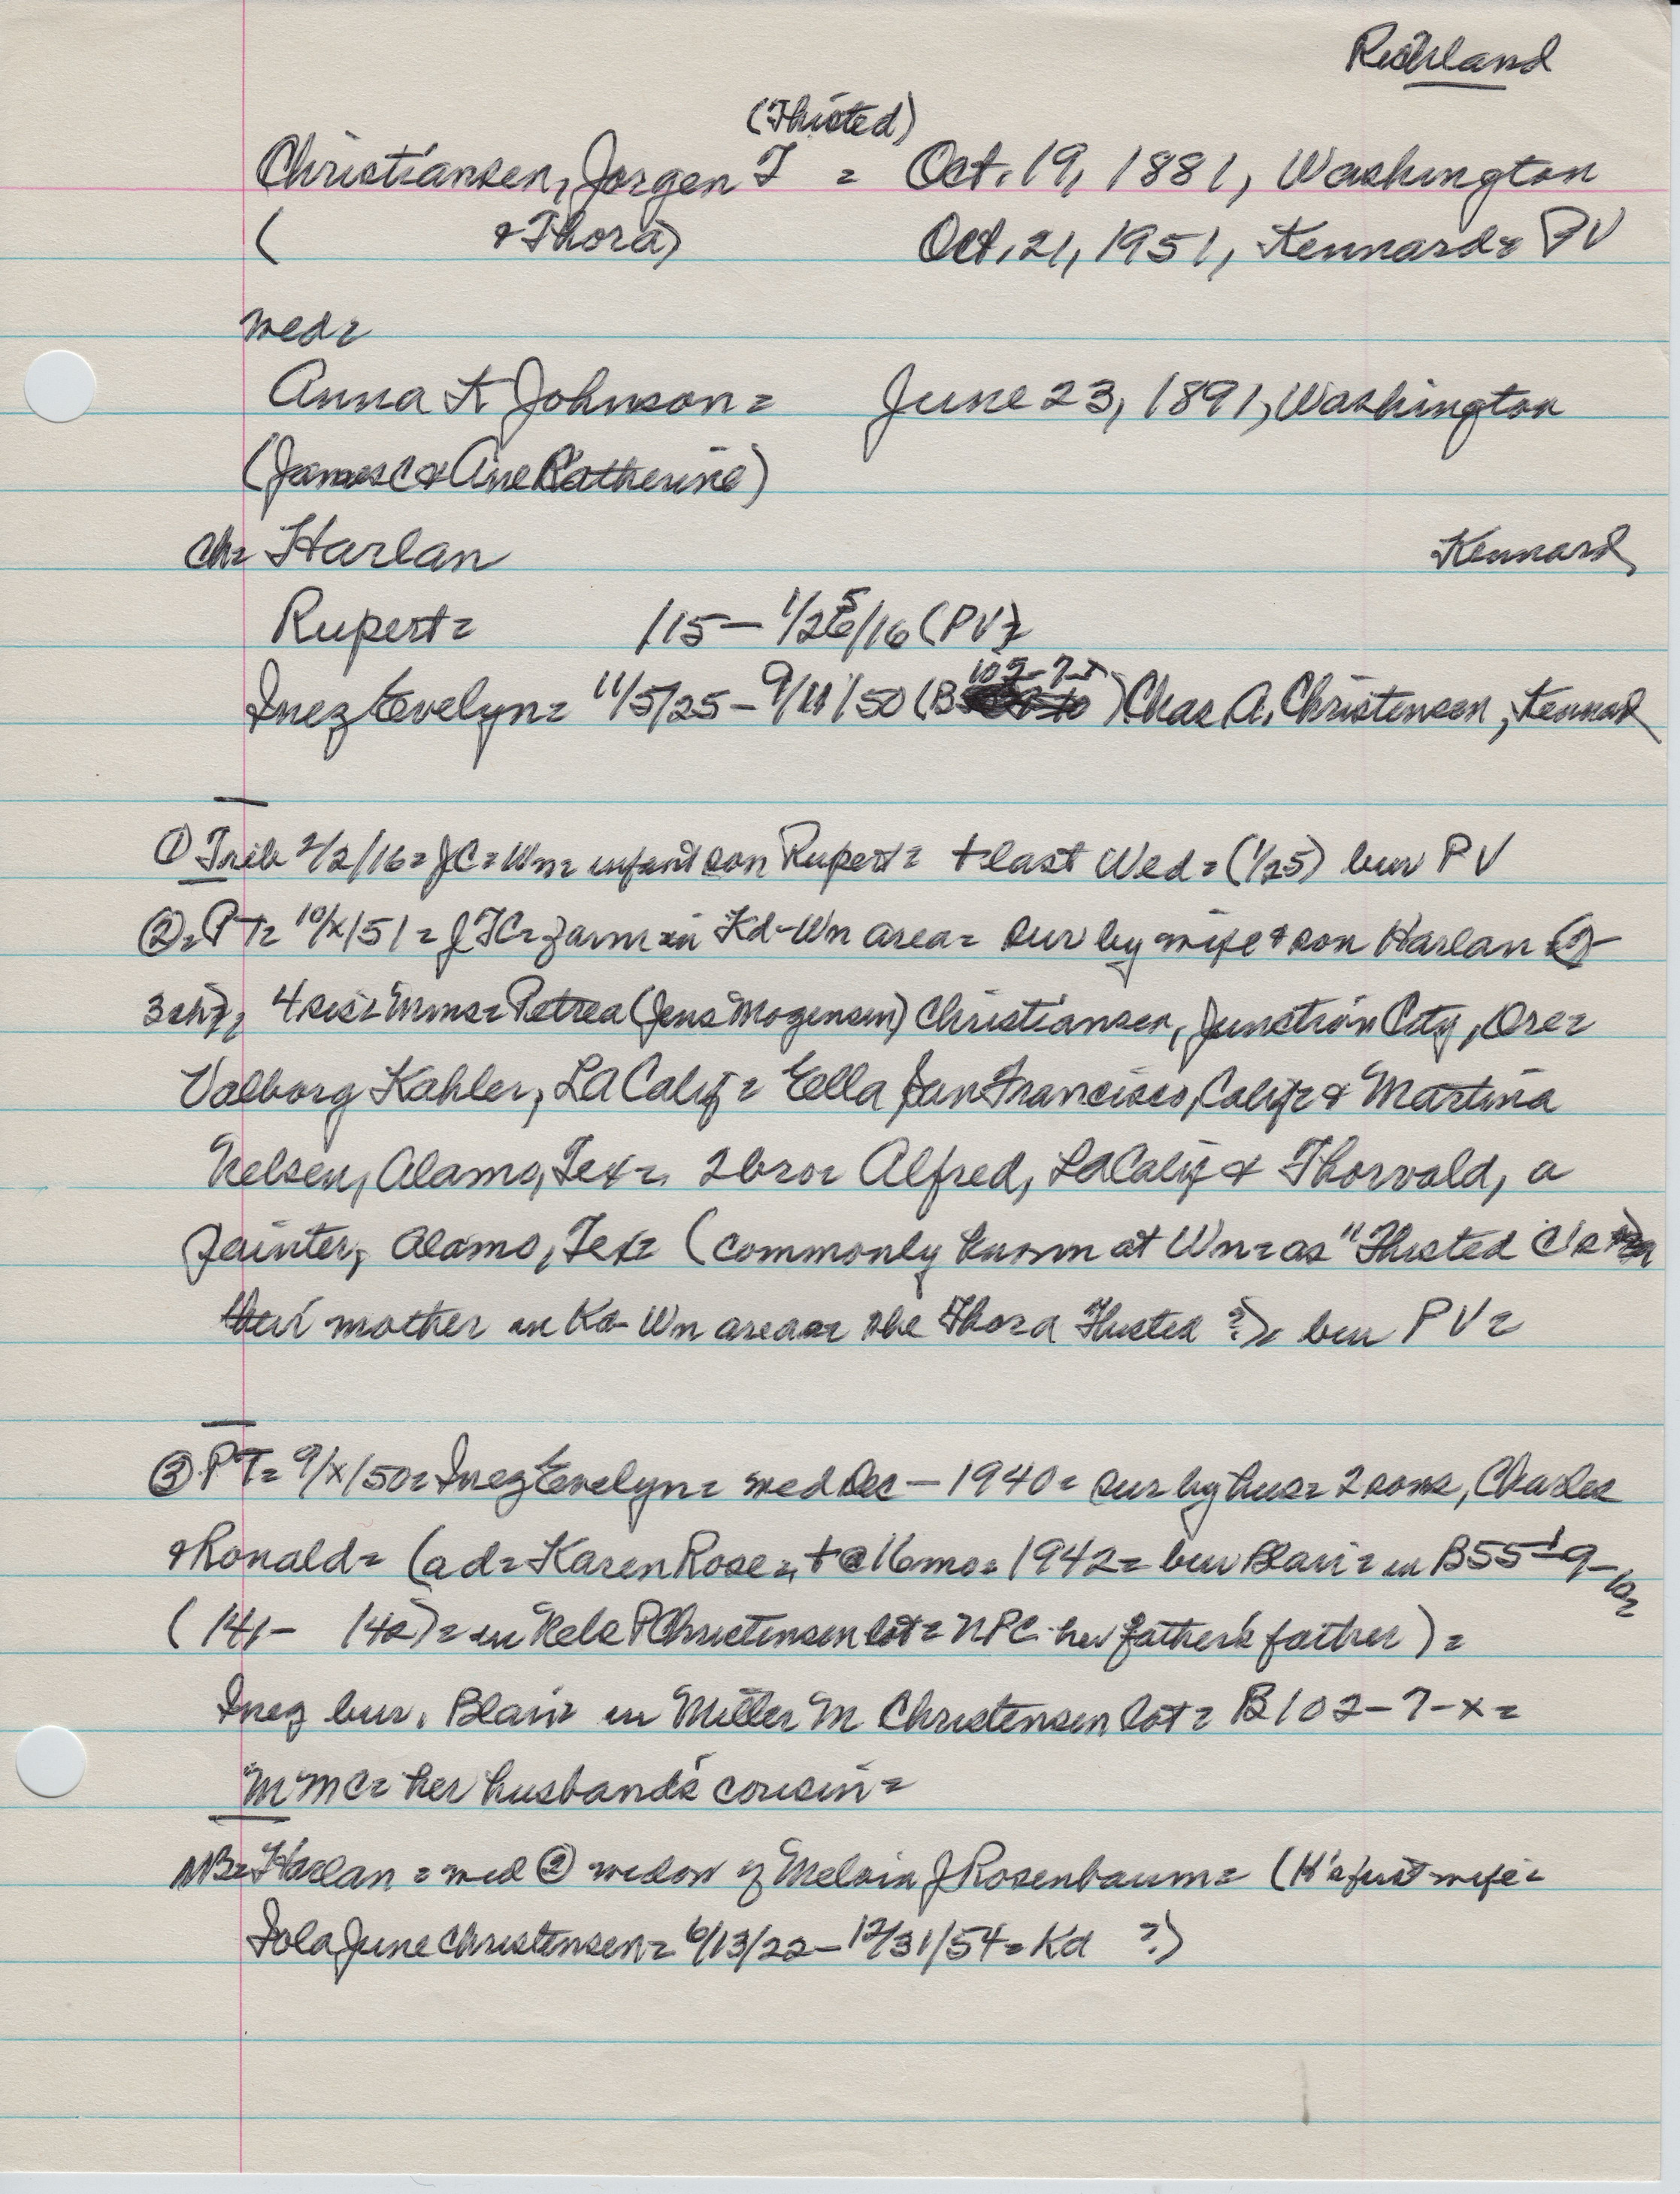 Richland
(Thisted)
Christiansen, Jorgen T = Oct. 19, 1881, Washington
( & Thora) Oct. 21, 1951, Kennard = PV
wed =
Anna K Johnson = June 23, 1891, Washington
(James C & Ane Katherine)
ch = Harlan Kennard
Rupert = /15 – 1/25/16 (PV) =
Inez Evelyn = 11/5/25 – 9/11/50 (B 102-7-x) Chas. A. Christensen, Kennard
① Trib 2/2/16 = JC = Wn = infant son Rupert = + last Wed = (1/25) bur PV
② = PT = 10/x/51 = JTC = farm in Kd-Wn area = sur by wife & son Harlan
4 sis = Mmes = Petrea (Jens Mogensen) Christiansen, Junction City, Ore =
Valborg Kahler, LA Calif = Ella San Francisco, Calif = & Martina
Nelsen, Alamo, Tex = 2 bro = Alfred, LA Calif & Thorvald, a
painter, Alamo, Tex = (commonly known at Wn = as "Thisted
their mother in Kd-Wn area or she Thora Thisted ?) = bur PV =
③ PT = 9/x/50 = Inez Evelyn = wed Dec – 1940 = sur by hus = 2 sons, Charles
& Ronald = (a d = Karen Rose = + @ 16 mo = 1942 = bur Blair = in B55-9-
(141- 142) = in Nels P Christensen lot = NPC her father's father) =
Inez bur. Blair in Miller M Christensen lot = B102-7-x =
MMC = her husband's cousin =
NB = Harlan = wed ② widow of Melvin J Rosenbaum = (H's first wife =
Iola June Christensen = 6/13/22 – 12/31/54 = Kd ?)